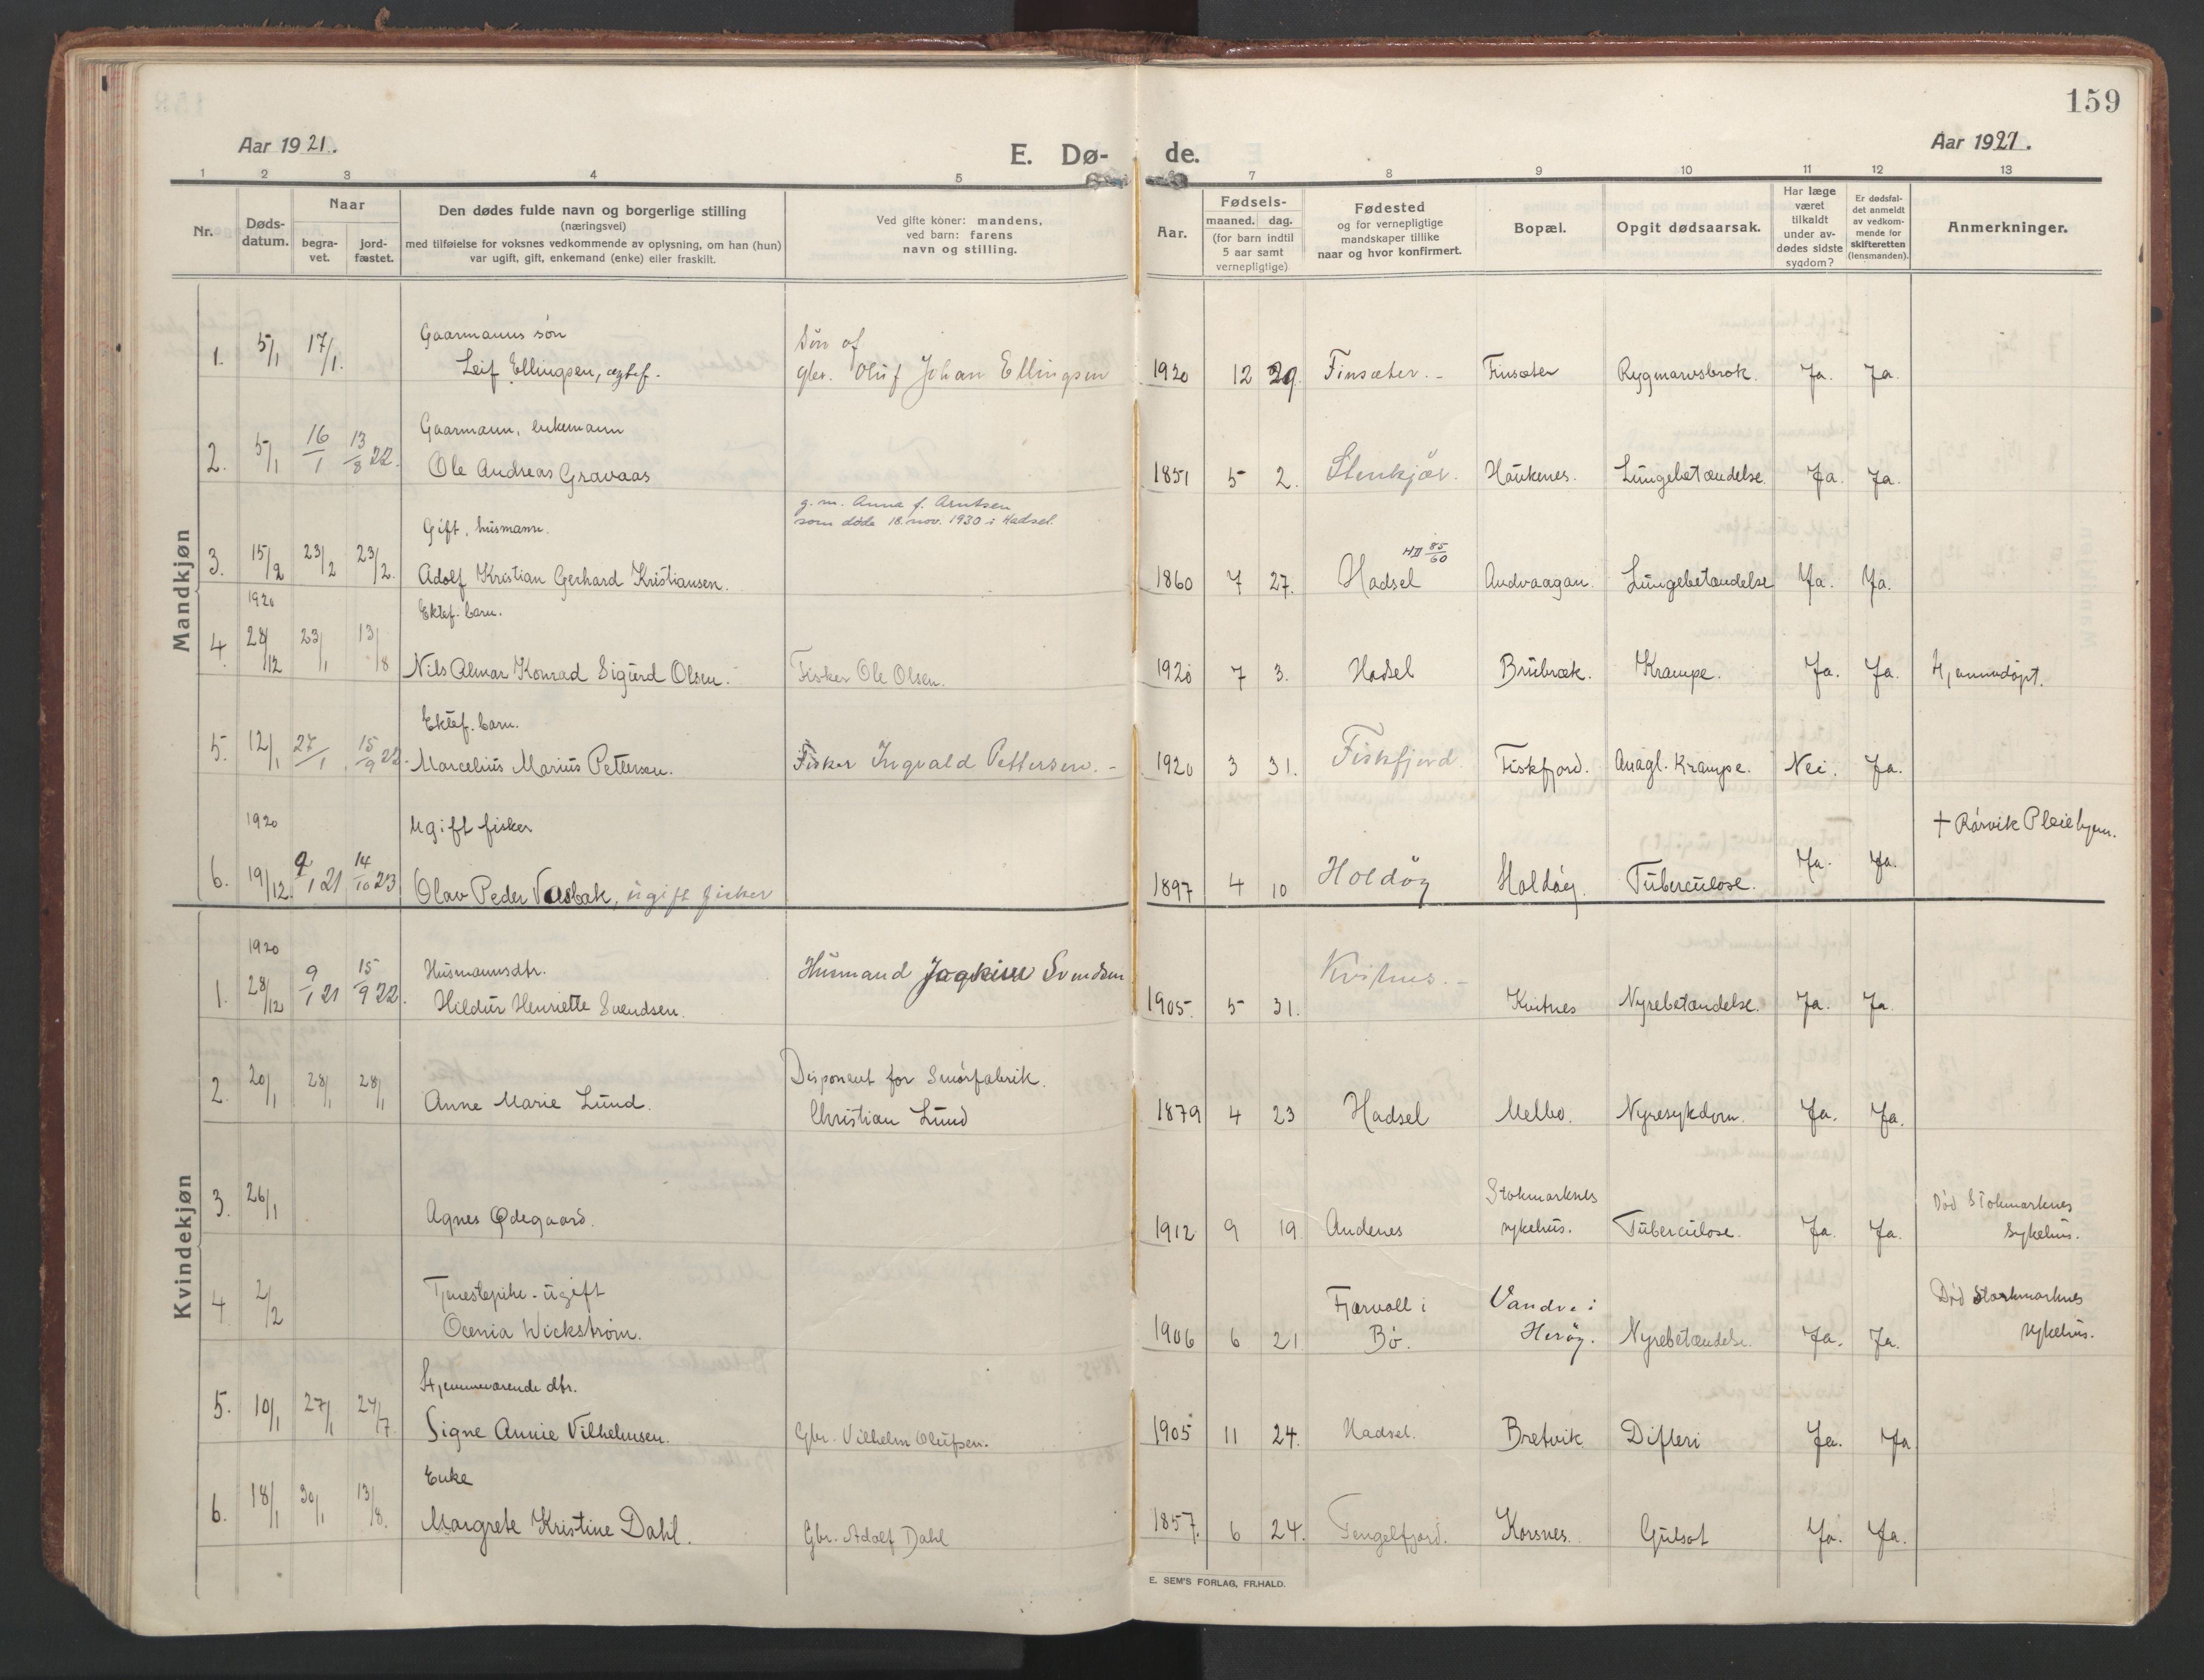 159
Aar 1921.
E. Dø- de.
Aar 1921.
1 2 3 4 5 7 8 9 10 11 12 13
Nr.
Døds-
datum.
Naar
begra-
vet.
jord-
fæstet.
Den dødes fulde navn og borgerlige stilling
(næringsvei)
med tilføielse for voksnes vedkommende av oplysning, om han (hun)
var ugift, gift, enkemand (enke) eller fraskilt.
Ved gifte koner: mandens,
ved barn: farens
navn og stilling.
Aar.
Fødsels-
maaned. dag.
(for barn indtil
5 aar samt
vernepligtige)
Fødested
og for vernepligtige
mandskaper tillike
naar og hvor konfirmert.
Bopæl.
Opgit dødsaarsak.
Har læge
været
tilkaldt
under av-
dødes sidste
sygdom?
Er dødsfal-
det anmeldt
av vedkom-
mende for
skifteretten
(lensmanden).
Anmerkninger.
Mandkjøn
Gaarmanns søn
Søn af
1. 5/1 17/1. Leif Ellingsen, egtef. gbr. Oluf Johan Ellingsen 1920 12 29. Finsæter. - Finsæter Rygmarvsbrok. Ja. Ja.
Gaarmann, enkemann
2. 5/1 16/1 13/8 22. Ole Andreas Gravaas 1851 5 2. Stenkjær. Haukenes. Lungebetændelse. Ja. Ja.
g. m. Anna f. Arntsen
som døde 18. nov. 1930 i Hadsel.
Gift, husmann.
HII 85/60
3. 15/2 23/2 23/2. Adolf Kristian Gerhard Kristiansen. 1860 7 27. Hadsel Andvaagan. Lungebetændelse Ja. Ja.
1920 Ektef. barn.
4. 28/12 23/1 13/8 Nils Almar Konrad Sigurd Olsen. Fisker Ole Olsen. 1920 7 3. Hadsel Brubræk. Krampe. Ja. Ja. Hjemmedøpt.
Ektef. barn.
5. 12/1 27/1 15/9 22. Marcelius Marius Pettersen. Fisker Ingvald Pettersen. - 1920 3 31. Fiskfjord. Fiskfjord. Krampe. Nei. Ja.
1920 Ugift fisker
† Rørvik Pleiehjem.
6. 19/12. 9/1 21 14/10 23 Olav Peder Vasbak, ugift fisker 1897 4 10 Holdøy Holdøy. Tuberculose. Ja. Ja.
Kvindekjøn
1920 Husmannsdtr. Husmand Joakim Svendsen
1. 28/12 9/1 21 15/9 22. Hildur Henriette Svendsen. 1905. 5 31. Kvitnes. - Kvitnes Nyrebetændelse. Ja. Ja.
Disponent for Smørfabrik.
2. 20/1 28/1 28/1 Anne Marie Lund. Christian Lund 1879 4 23 Hadsel Melbo. Nyresykdom. Ja. Ja.
Stokmarknes
Død Stokmarknes
3. 26/1 Agnes Ødegaard. 1912 9 19. Andenes sykehus. Tuberculose. Ja. Ja. Sykehus.
Tjenestepike - ugift
Fjærvoll i
Død Stokmarknes
4 2/2 Ocenia Wickstrøm. 1906 6 21. Bø. Herøy. Nyrebetændelse. Ja. Ja. sykehus.
Hjemmeværende dtr.
5. 10/1 27/1 24/7. Signe Annie Vilhelmsen. Gbr. Vilhelm Olufsen. 1905 11 24. Hadsel. Bretvik Difteri Ja. Ja
Enke
6. 18/1 30/1 13/8. Margrete Kristine Dahl. Gbr. Adolf Dahl 1857. 6 24. Tengelfjord. Korsnes. Gulsot Ja. Ja.
E. SEM'S FORLAG, FR.HALD.